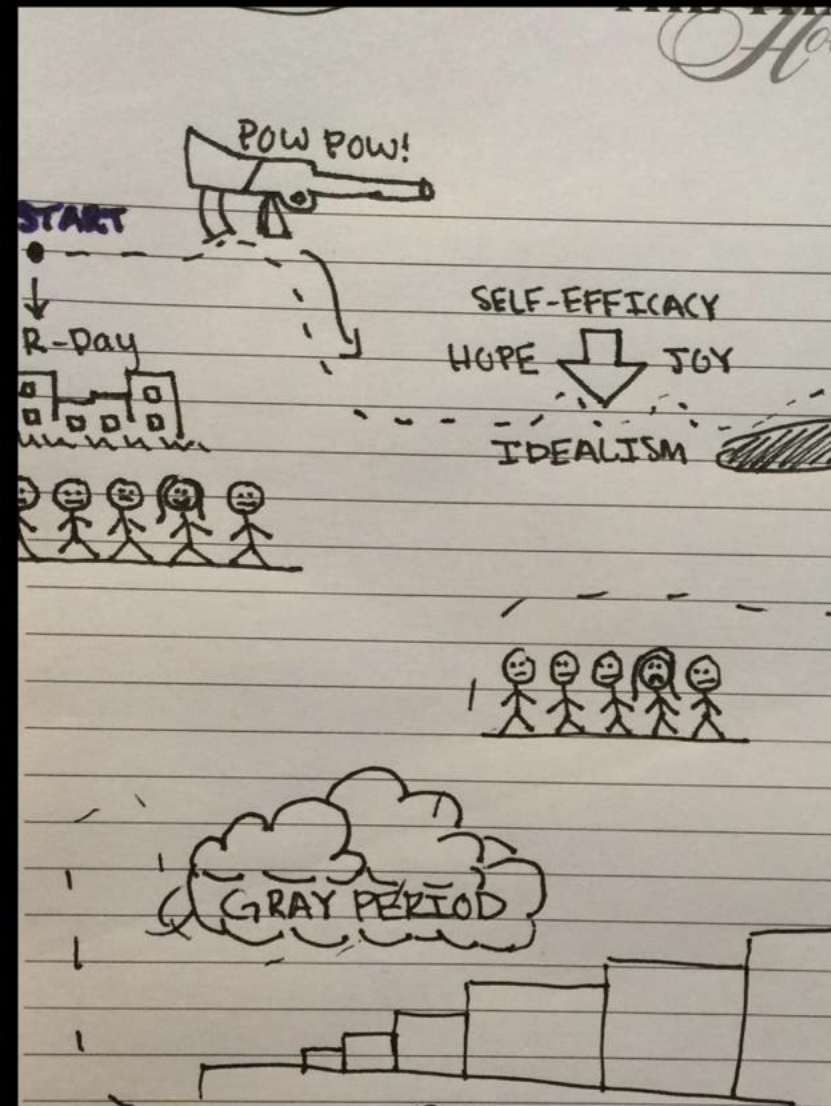 Ho
POW POW!
START
R-Day
SELF-EFFICACY
HOPE JOY
IDEALISM
GRAY PERIOD